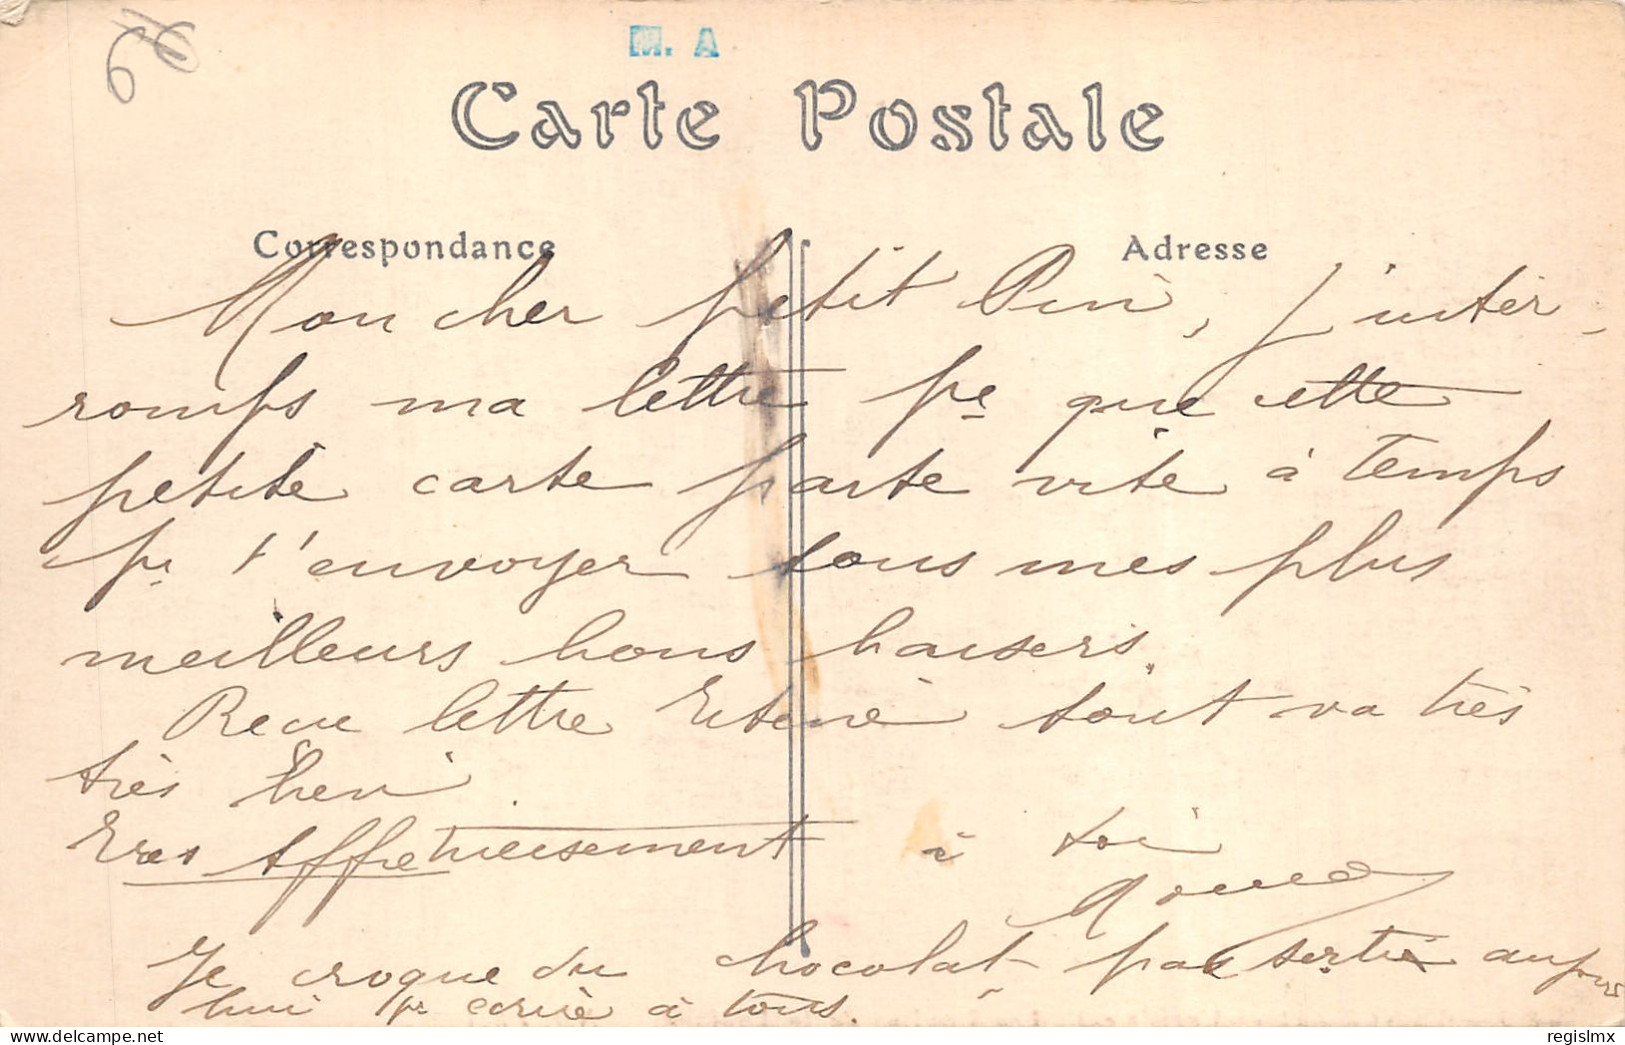 M. A
Carte Postale
Correspondance
Adresse
Mon cher petit
j'inter-
romps ma lettre pr que cette
petite carte parte vite à temps
pr t'envoyer tous mes plus
meilleurs bons baisers.
Reçue lettre tout va très
très bien.
Très Affectueusement à toi
Je croque du chocolat, pas sortie aujour
hui pr écrire à tous.
regislmx